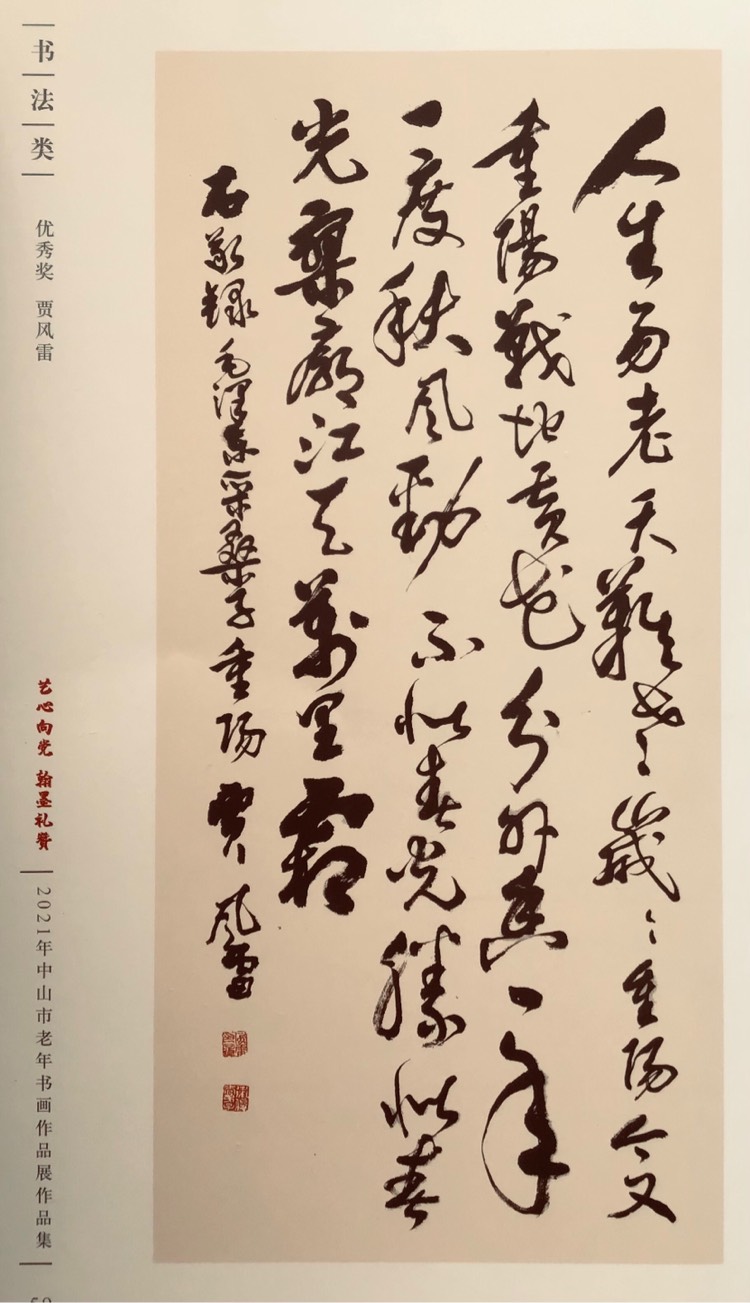 书法类
优秀奖 贾风雷
艺心向党 翰墨礼赞
2021年中山市老年书画作品展作品集
人生易老天難老歲〻重陽今又
重陽戰地黃花分外香一年
一度秋風勁不似春光勝似春
光寥廓江天萬里霜
右敬錄毛澤東采桑子重陽 賈風雷